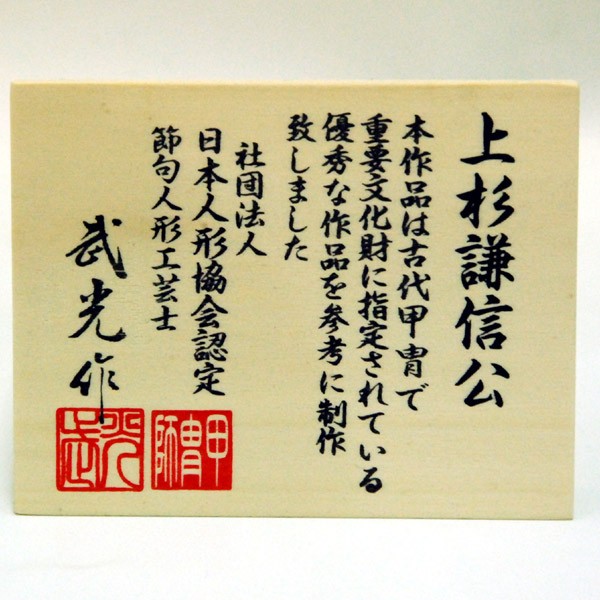 上杉謙信公
本作品は古代甲冑で
重要文化財に指定されている
優秀な作品を参考に制作
致しました
社団法人
日本人形協会認定
節句人形工芸士
武光作
甲冑師
武光